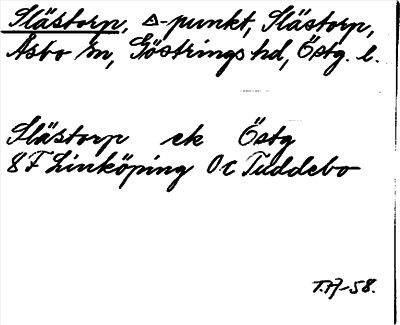 Slästorp, △-punkt, Slästorp,
Åsbo sn, Göstrings hd, Östg. l.
Slästorp ek Östg
8F Linköping 0c Tuddebo
T.A-58.